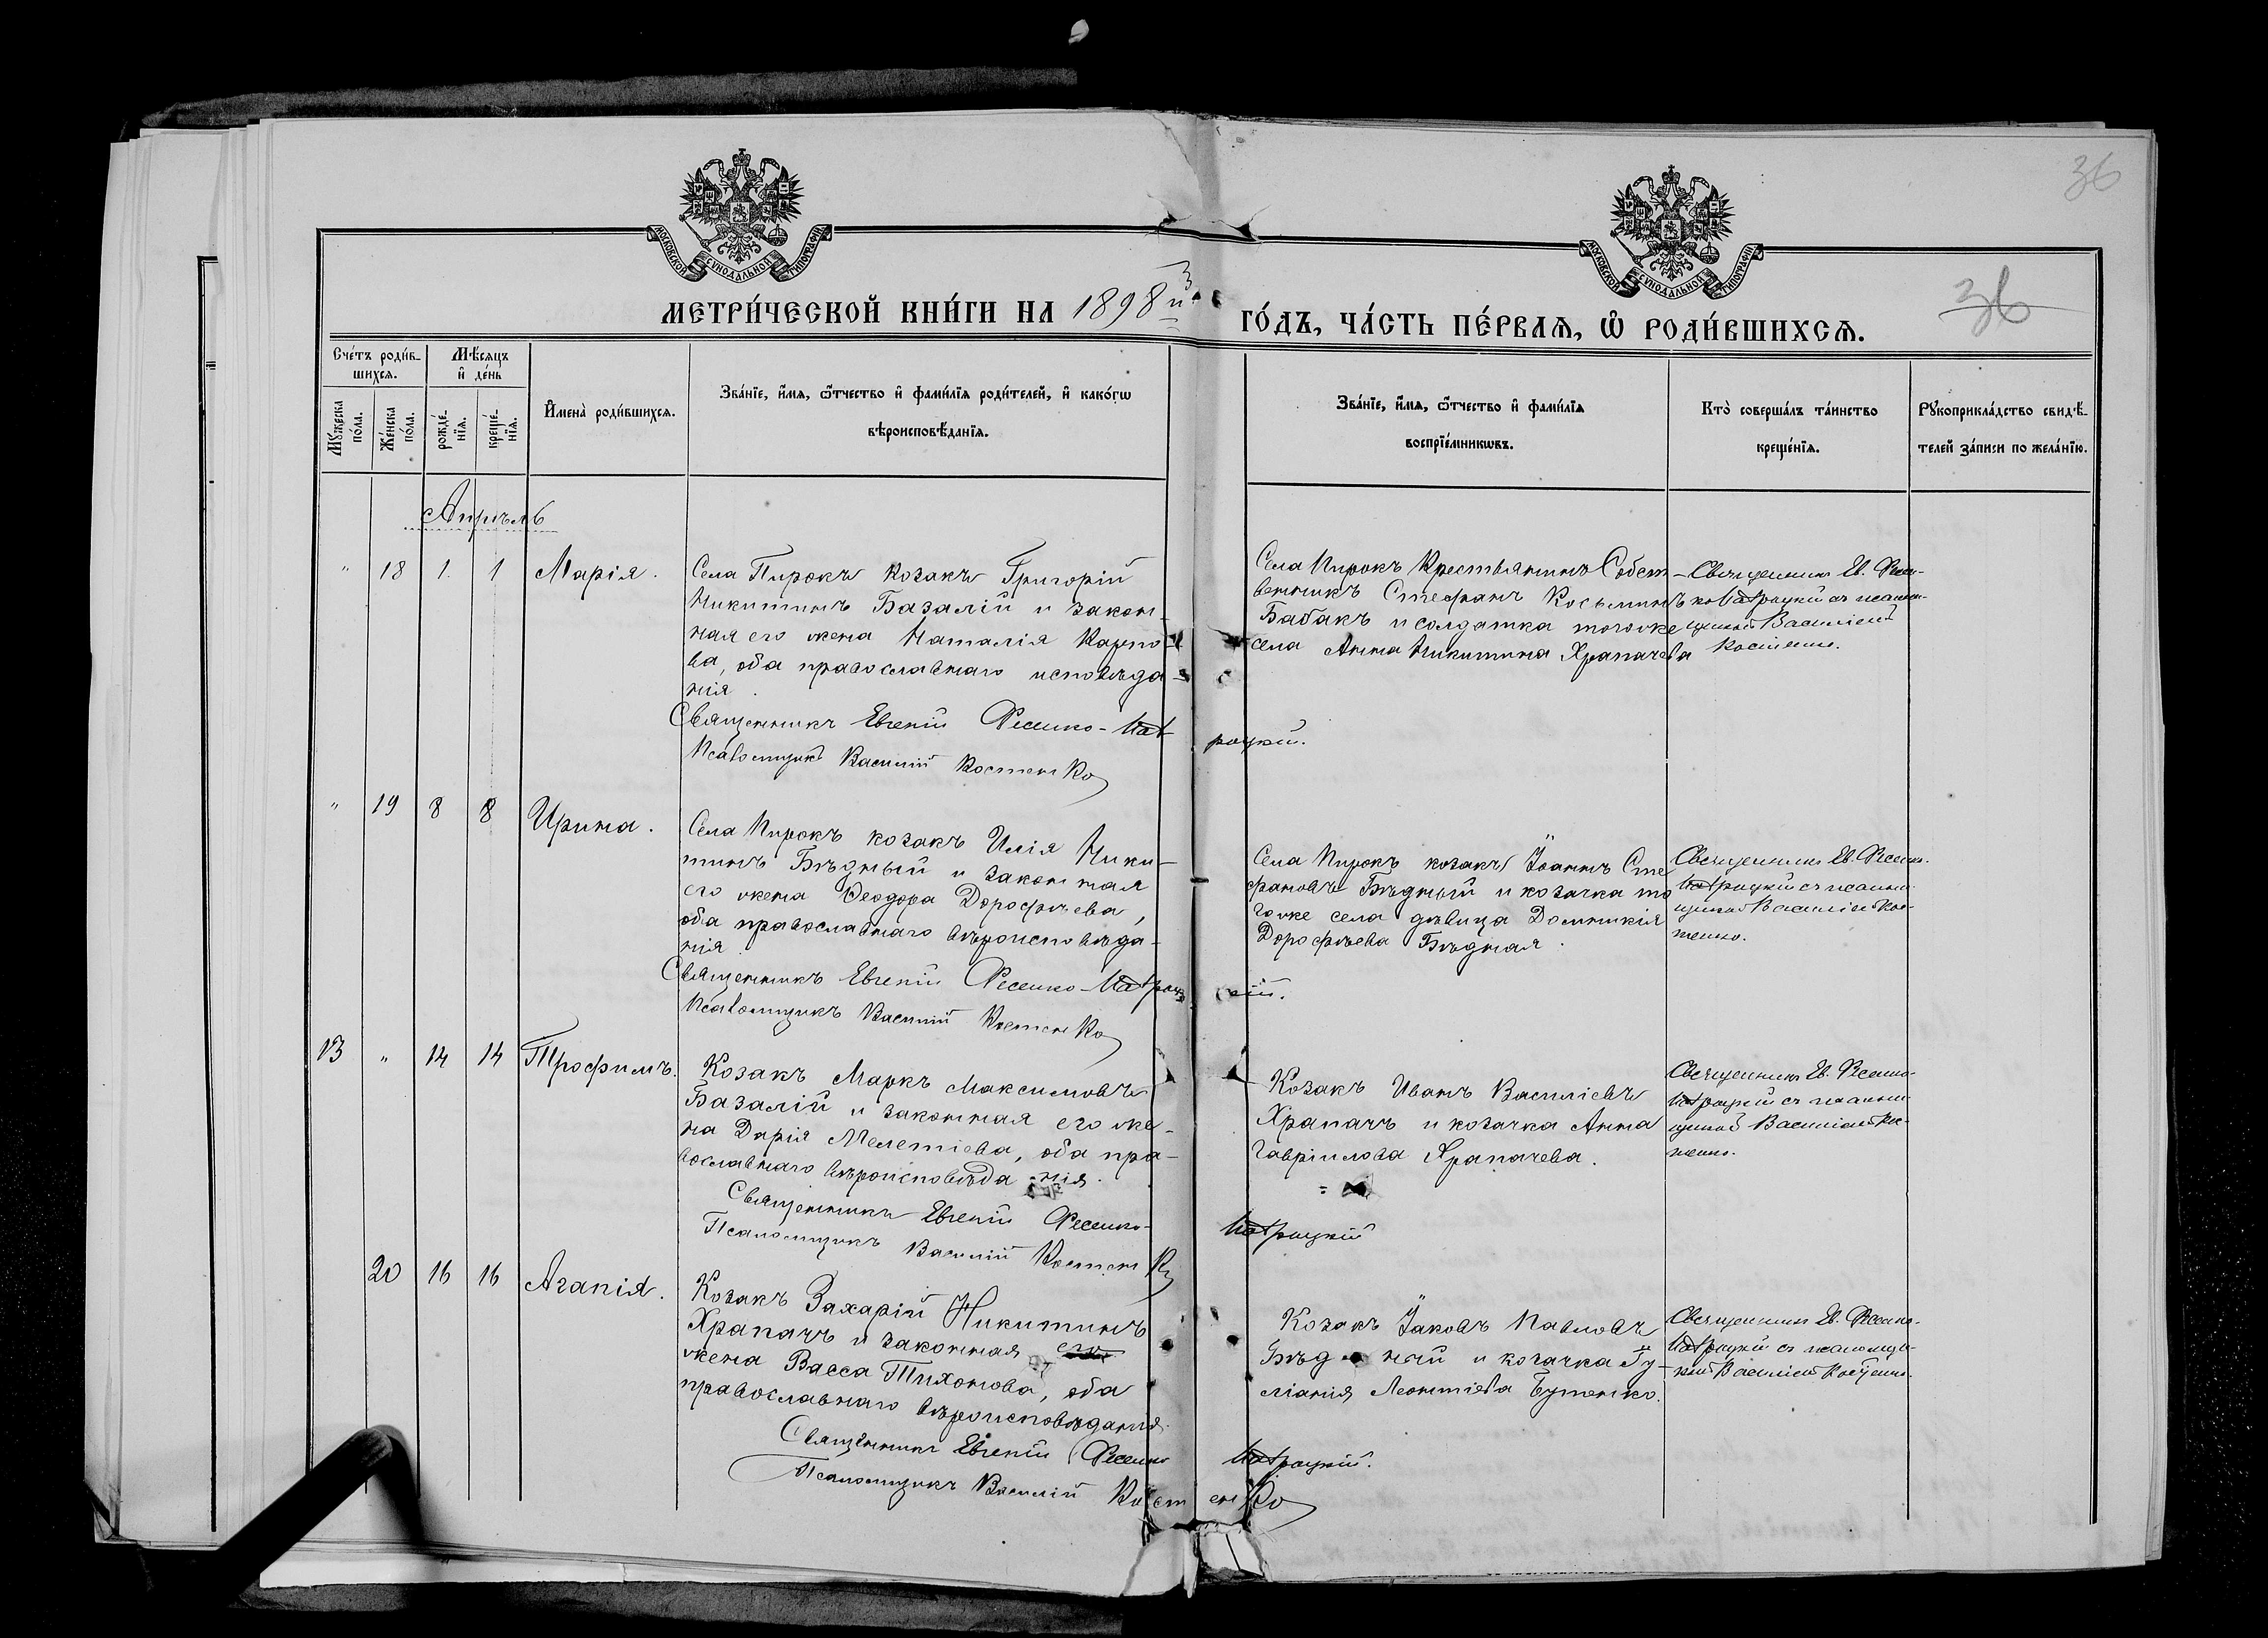 36
МОСКОВСКОЙ СУНОДАЛЬНОЙ ТИПОГРАФІИ
МОСКОВСКОЙ СУНОДАЛЬНОЙ ТИПОГРАФІИ
МЕТРИ́ЧЕСКОЙ КНИ́ГИ НА 1898й
ГО́ДЪ, ЧА́СТЬ ПЕ́РВАѦ, Ѡ҆ РОДИ́ВШИХСѦ.
36
Сче́тъ роди́в-
шихсѧ.
Мѣ́сѧцъ
и҆ де́нь
Мꙋ́жеска
по́ла.
Же́нска
по́ла.
рожде́-
нїѧ.
креще́-
нїѧ.
И҆мена̀ роди́вшихсѧ.
Зва́нїе, и҆́мѧ, ѻ҆́тчество и҆ фами́лїѧ роди́телей, и҆ како́гѡ
вѣроисповѣ́данїѧ.
Зва́нїе, и҆́мѧ, ѻ҆́тчество и҆ фами́лїѧ
воспрїе́мникѡвъ.
Кто̀ соверша́лъ та́инство
креще́нїѧ.
Рꙋкоприкла́дство свидѣ́-
телей за́писи по жела́нїю.
Апрѣль
" 18 1. 1 Марія.
Села Пирокъ козакъ Григорій
Никитинъ Базалій и закон-
ная его жена Наталія Карпо-
ва, оба православнаго исповѣда-
нія.
Священникъ Евгеній Фесенко-
роцкій.
Псаломщикъ Василій Костенко
Села Пирокъ Крестьянинъ Собст-
венникъ Стефанъ Косьминъ
Бабакъ и солдатка тогоже
села Анна Никитина Храпачева
Священникъ Ев. Фесен-
Василіемъ
Костенко.
" 19 8 8 Ирина.
Села Пирокъ козакъ Илія Ники-
тинъ Бѣдный и законная
его жена Ѳеодора Дорофѣева,
оба православнаго вѣроисповѣда-
нія.
Священникъ Евгеній Фесенко-
кій.
Псаломщикъ Василій Костенко
Села Пирокъ козакъ Іоаннъ Сте
фановъ Бѣдный и козачка то
гоже села дѣвица Домникія
Дорофѣева Бѣдная.
Священникъ Ев. Фесенко.
роцкій съ псалом-
щикомъ Василіемъ Кос-
тенко.
13 " 14 14 Трофимъ.
Козакъ Маркъ Максимовъ
Базалій и законная его же-
на Дарія Мелетіева, оба пра-
вославнаго вѣроисповѣда-нія.
Священникъ Евгеній Фесенко-
роцкій
Псаломщикъ Василій Костенко
Козакъ Иванъ Василіевъ
Храпачъ и козачка Анна
Гавріилова Храпачева.
Священникъ Ев. Фесенко-
роцкій съ псалом-
щикомъ Василіемъ Кос-
тенко.
20 16 16 Агапія.
Козакъ Захарій Никитинъ
Храпачъ и законная его
жена Васса Тихонова, оба
православнаго вѣроисповѣданія.
Священникъ Евгеній Фесенко
роцкій.
Псаломщикъ Василій Костенко
Козакъ Іаковъ Павловъ
Бѣдный и козачка Іу-
ліанія Леонтіева Бутенко.
Священникъ Ев. Фесенко-
роцкій съ псаломщи-
комъ Василіемъ Костенко.